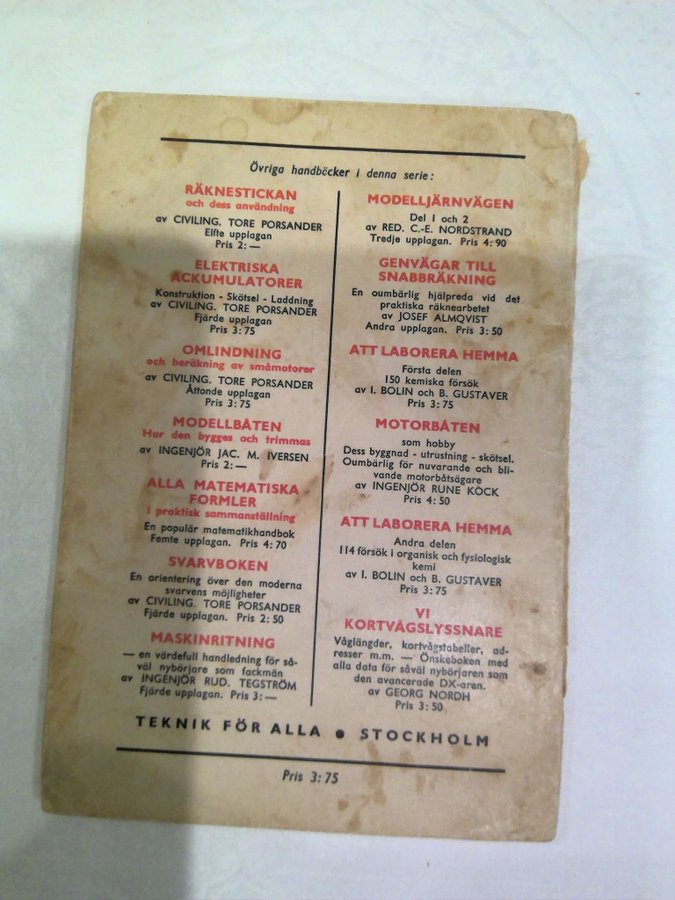 Övriga handböcker i denna serie:
RÄKNESTICKAN
och dess användning
av CIVILING. TORE PORSANDER
Elfte upplagan
Pris 2: —
ELEKTRISKA
ACKUMULATORER
Konstruktion - Skötsel - Laddning
av CIVILING. TORE PORSANDER
Fjärde upplagan
Pris 3: 75
OMLINDNING
och beräkning av småmotorer
av CIVILING. TORE PORSANDER
Åttonde upplagan
Pris 3: 75
MODELLBÅTEN
Hur den bygges och trimmas
av INGENJÖR JAC. M. IVERSEN
Pris 2: —
ALLA MATEMATISKA
FORMLER
i praktisk sammanställning
En populär matematikhandbok
Femte upplagan. Pris 4: 70
SVARVBOKEN
En orientering över den moderna
svarvens möjligheter
av CIVILING. TORE PORSANDER
Fjärde upplagan. Pris 2: 50
MASKINRITNING
— en värdefull handledning för så-
väl nybörjare som fackmän
av INGENJÖR RUD. TEGSTRÖM
Fjärde upplagan. Pris 3: —
MODELLJÄRNVÄGEN
Del 1 och 2
av RED. C.-E. NORDSTRAND
Tredje upplagan. Pris 4: 90
GENVÄGAR TILL
SNABBRÄKNING
En oumbärlig hjälpreda vid det
praktiska räknearbetet
av JOSEF ALMQVIST
Andra upplagan. Pris 3: 50
ATT LABORERA HEMMA
Första delen
150 kemiska försök
av I. BOLIN och B. GUSTAVER
Pris 3: 75
MOTORBÅTEN
som hobby
Dess byggnad - utrustning - skötsel.
Oumbärlig för nuvarande och bli-
vande motorbåtsägare
av INGENJÖR RUNE KOCK
Pris 4: 50
ATT LABORERA HEMMA
Andra delen
114 försök i organisk och fysiologisk
kemi
av I. BOLIN och B. GUSTAVER
Pris 3: 75
VI
KORTVÅGSLYSSNARE
Våglängder, kortvågstabeller, ad-
resser m.m. — Önskeboken med
alla data för såväl nybörjaren som
den avancerade DX-aren.
av GEORG NORDH
Pris 3: 50
TEKNIK FÖR ALLA ● STOCKHOLM
Pris 3: 75